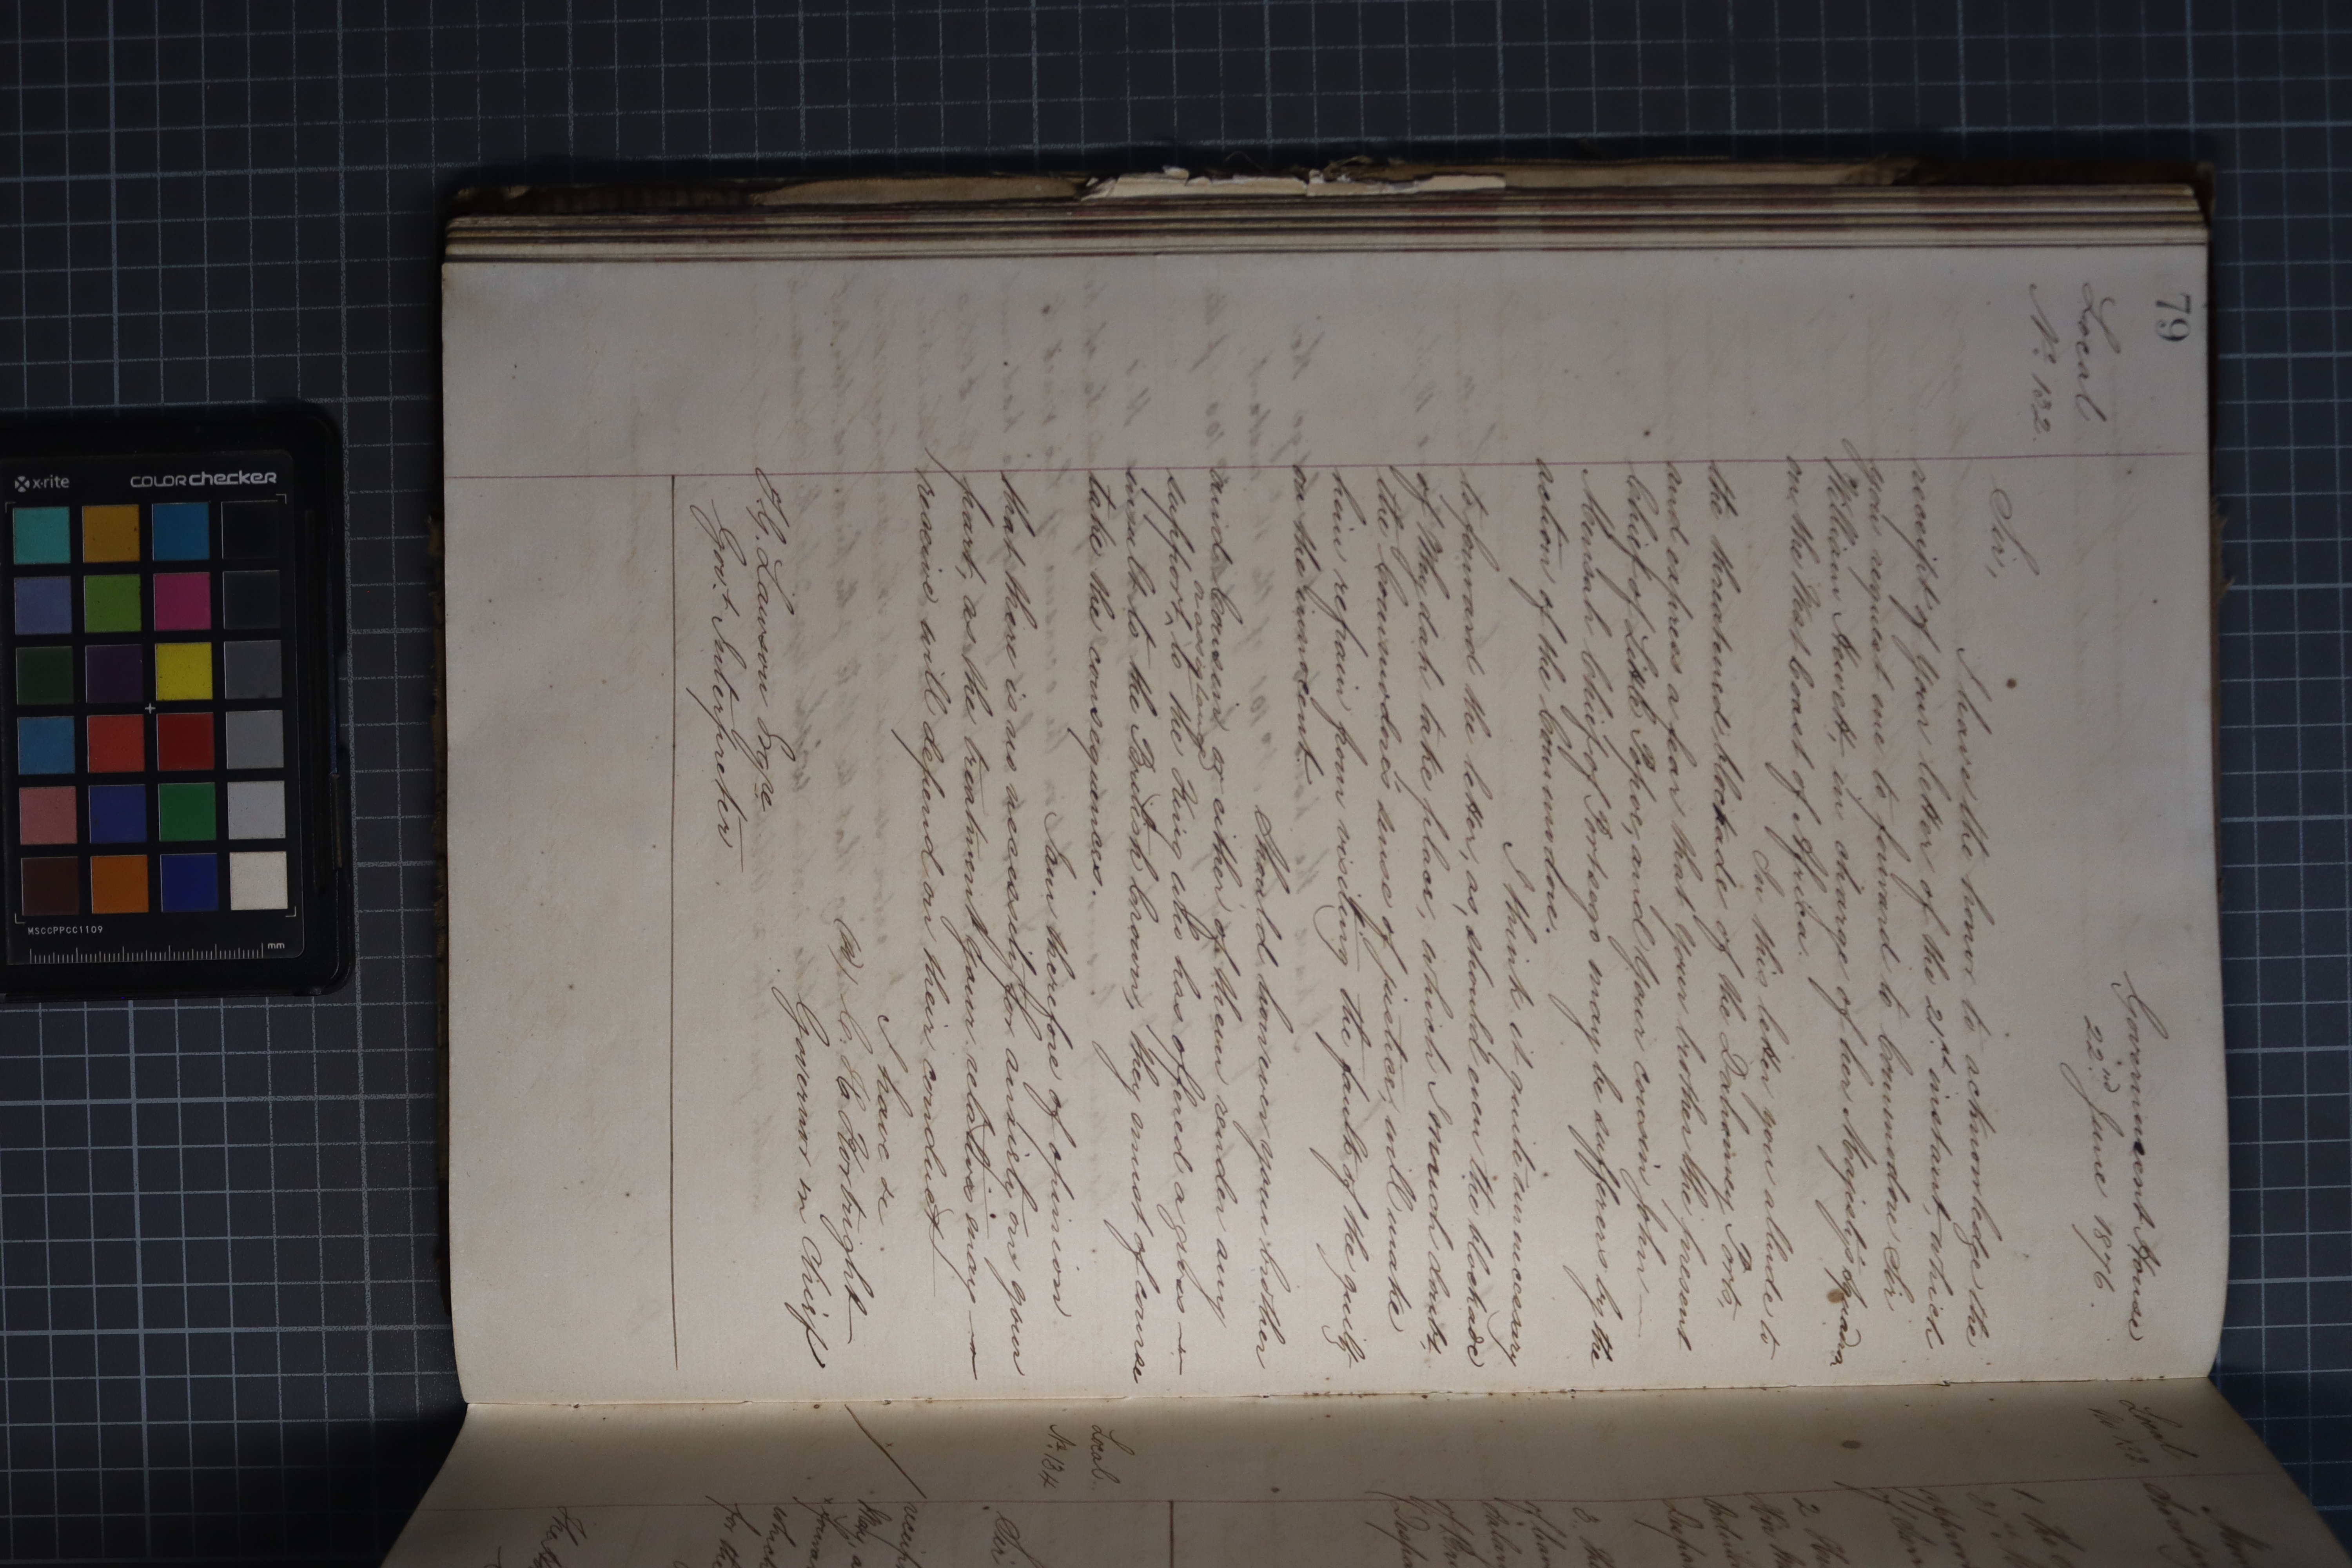 79
Local
No. 132.
Government House
22nd June 1876.
Sir,
I have the honor to acknowledge the
receipt of your letter of the 21st instant, which
you request me to forward to Commodore Sir
William Hewett, in charge of her Majesty's Squadn
on the West Coast of Africa.
In this letter you allude to
the threatened blockade of the Dahomey Ports,
and express a fear that your brother the present
Chief of Little Popoe, and your cousin John
Mensah Chief of Porlsego may be sufferers by the
action of the Commodore.
I think it quite unnecessary
to forward the letter, as, should even the blockade
of Whydah take place, which I much doubt,
the Commodore's sense of justice, will make
him refrain from visiting the fault of the guilty
on the innocent.
Should, however, your brother
and cousin or either of them render any
support, or assistance to the King who has offered a gross
insult to the British Crown, they must of course
take the consequences.
I am therefore of opinion
that there is no necessity for anxiety on your
part, as the treatment your relative may
receive will depend on their conduct
I have &c
C. H. Kortright
Governor in Chief
T.G. Lawson Esqre
Govt. Interpreter
Local
No 133
Local.
No. 134
Sir
x-rite
colorchecker
MSCCPPCC1109
mm